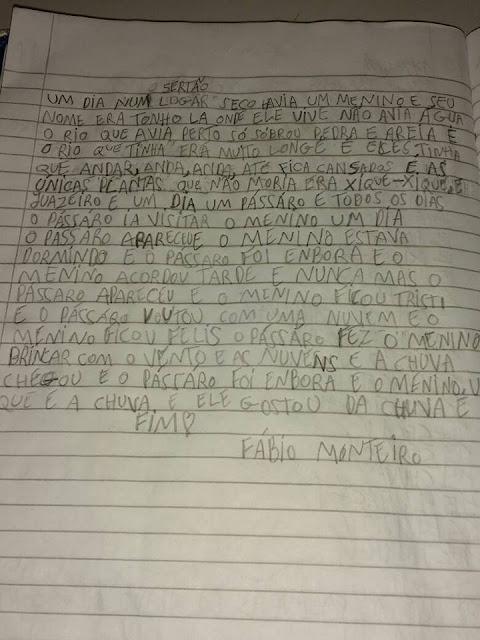 O SERTÃO
UM DIA NUM LUGAR SECO AVIA UM MENINO E SEU
NOME ERA TONHO LA ONDE ELE VIVE NÃO AVIA AGUA
O RIO QUE AVIA PERTO SÓ SOBROU PEDRA E AREIA E
O RIO QUE TINHA ERA MUITO LONGE E ELES TINHA
QUE ANDAR, ANDA, ANDA, ATÉ FICA CANSADOS E AS
ÚNICAS PLANTAS QUE NÃO MORIA ERA XIQUE-XIQUE, E
JUAZEIRO E UM DIA UM PASSARO E TODOS OS DIAS
O PÁSSARO IA VISITAR O MENINO UM DIA
O PÁSSARO APARECEUE O MENINO ESTAVA
DORMINDO E O PÁSSARO FOI ENBORA E O
MENINO ACORDOU TARDE E NUNCA MAS O
PÁSSARO APARECEU E O MENINO FICOU TRISTI
E O PÁSSARO VOUTOU COM UMA NUVEM E O
MENINO FICOU FELIS O PÁSSÁRO FEZ O MENINO
BRINCAR COM O VENTO E AS NUVENS E A CHUVA
CHEGOU E O PÁSSARO FOI ENBORA E O MENINO, V
QUE E A CHUVA E ELE GOSTOU DA CHUVA E
FIM
FÁBIO MONTEIRO